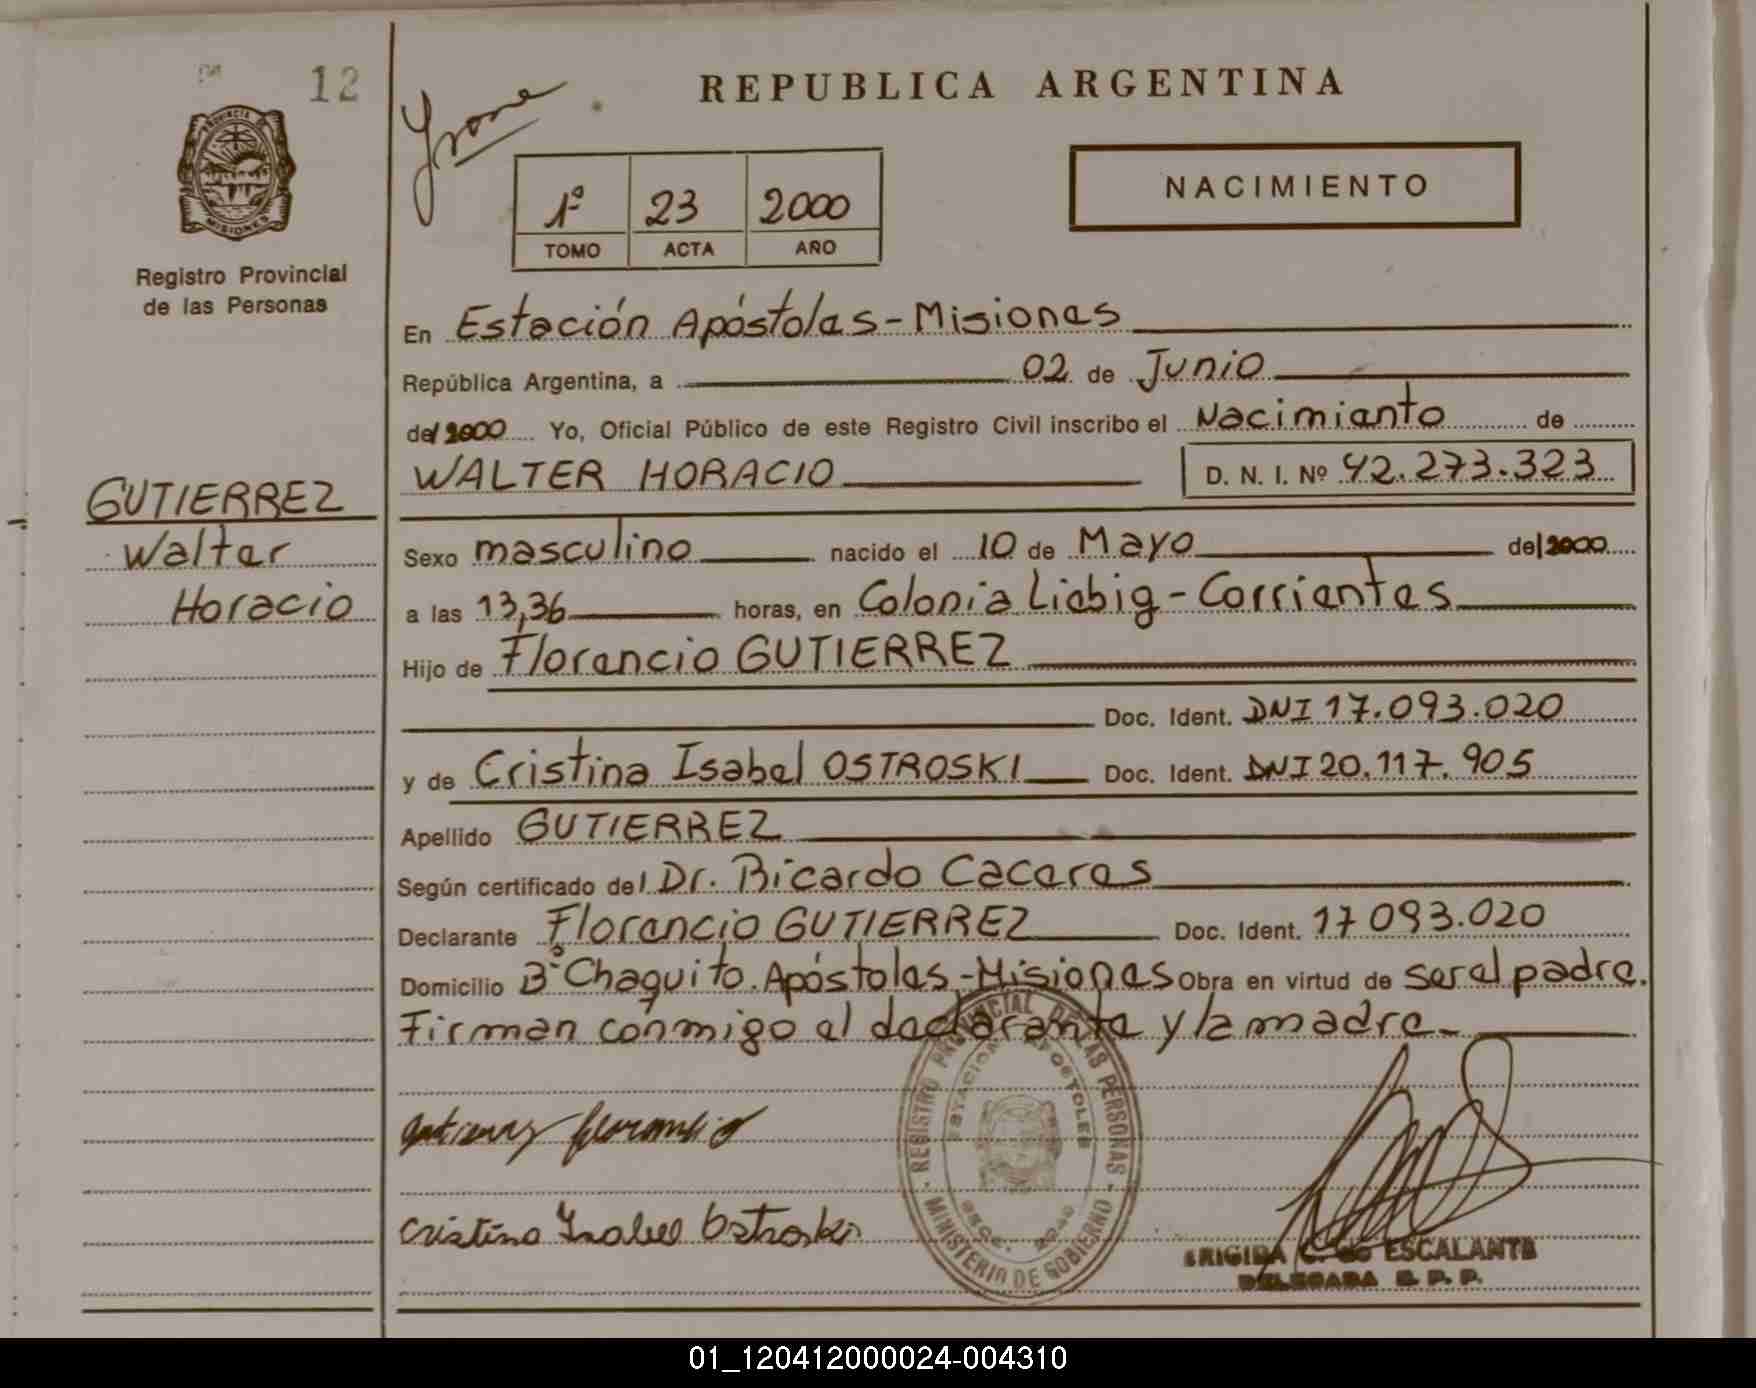 12
REPUBLICA ARGENTINA
NACIMIENTO
1º 23 2000
TOMO ACTA AÑO
Registro Provincial
de las Personas
En Estación Apóstoles - Misiones
República Argentina, a 02 de Junio
del 2000 Yo, Oficial Público de este Registro Civil inscribo el Nacimiento de
WALTER HORACIO D. N. I. Nº 42.273.323
GUTIERREZ
Walter
Horacio
Sexo masculino nacido el 10 de Mayo del 2000
a las 13,36 horas, en Colonia Liebig - Corrientes
Hijo de Florencio GUTIERREZ
Doc. Ident. DNI 17.093.020
y de Cristina Isabel OSTROSKI Doc. Ident. DNI 20.117.905
Apellido GUTIERREZ
Según certificado del Dr. Ricardo Caceres
Declarante Florencio GUTIERREZ Doc. Ident. 17 093.020
Domicilio Bº Chaquito. Apóstoles - Misiones Obra en virtud de ser el padre.
Firman conmigo el declarante y la madre.
REGISTRO PROVINCIAL DE LAS PERSONAS
ESTACION APOSTOLES
MINISTERIO DE GOBIERNO
Gutierrez Florencio
Cristina Isabel Ostroski
BRIGIDA C. de ESCALANTE
DELEGADA R. P. P.
01_120412000024-004310